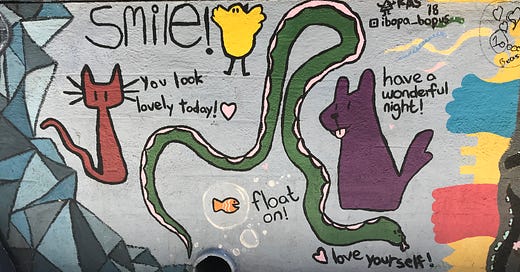 smile!
18
ibopo_bopus
you look
lovely today!
have a
wonderful
night!
float
on!
love yourself!